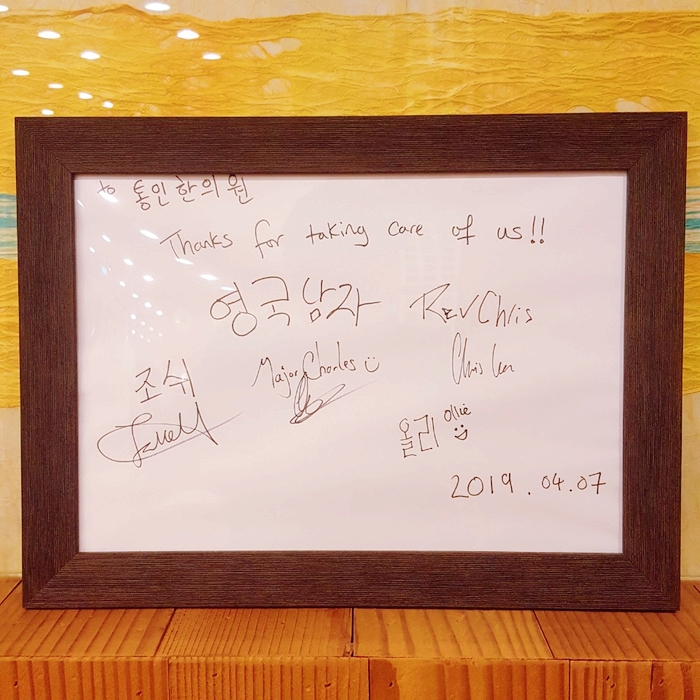 to 통인한의원
Thanks for taking care of us!!
영국남자 Rev Chris
조쉬 Major Charles Chris Lee
올리 Ollie
2019.04.07